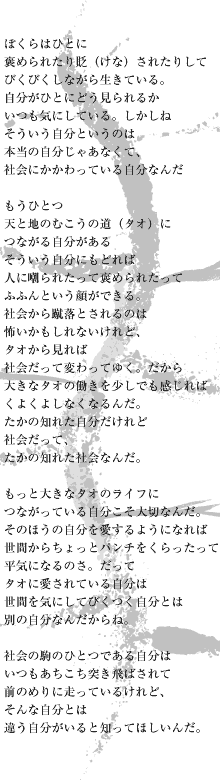 ぼくらはひとに
褒められたり貶（けな）されたりして
びくびくしながら生きている。
自分がひとにどう見られるか
いつも気にしている。しかしね
そういう自分というのは、
本当の自分じゃあなくて、
社会にかかわっている自分なんだ
もうひとつ
天と地のむこうの道（タオ）に
つながる自分がある
そういう自分にもどれば
人に嘲られたって褒められたって
ふふんという顔ができる。
社会から蹴落とされるのは
怖いかもしれないけれど、
タオから見れば
社会だって変わってゆく。だから
大きなタオの働きを少しでも感じれば
くよくよしなくなるんだ。
たかの知れた自分だけれど
社会だって、
たかの知れた社会なんだ。
もっと大きなタオのライフに
つながっている自分こそ大切なんだ。
そのほうの自分を愛するようになれば
世間からちょっとパンチをくらったって
平気になるのさ。だって
タオに愛されている自分は
世間を気にしてびくつく自分とは
別の自分なんだからね。
社会の駒のひとつである自分は
いつもあちこち突き飛ばされて
前のめりに走っているけれど、
そんな自分とは
違う自分がいると知ってほしいんだ。